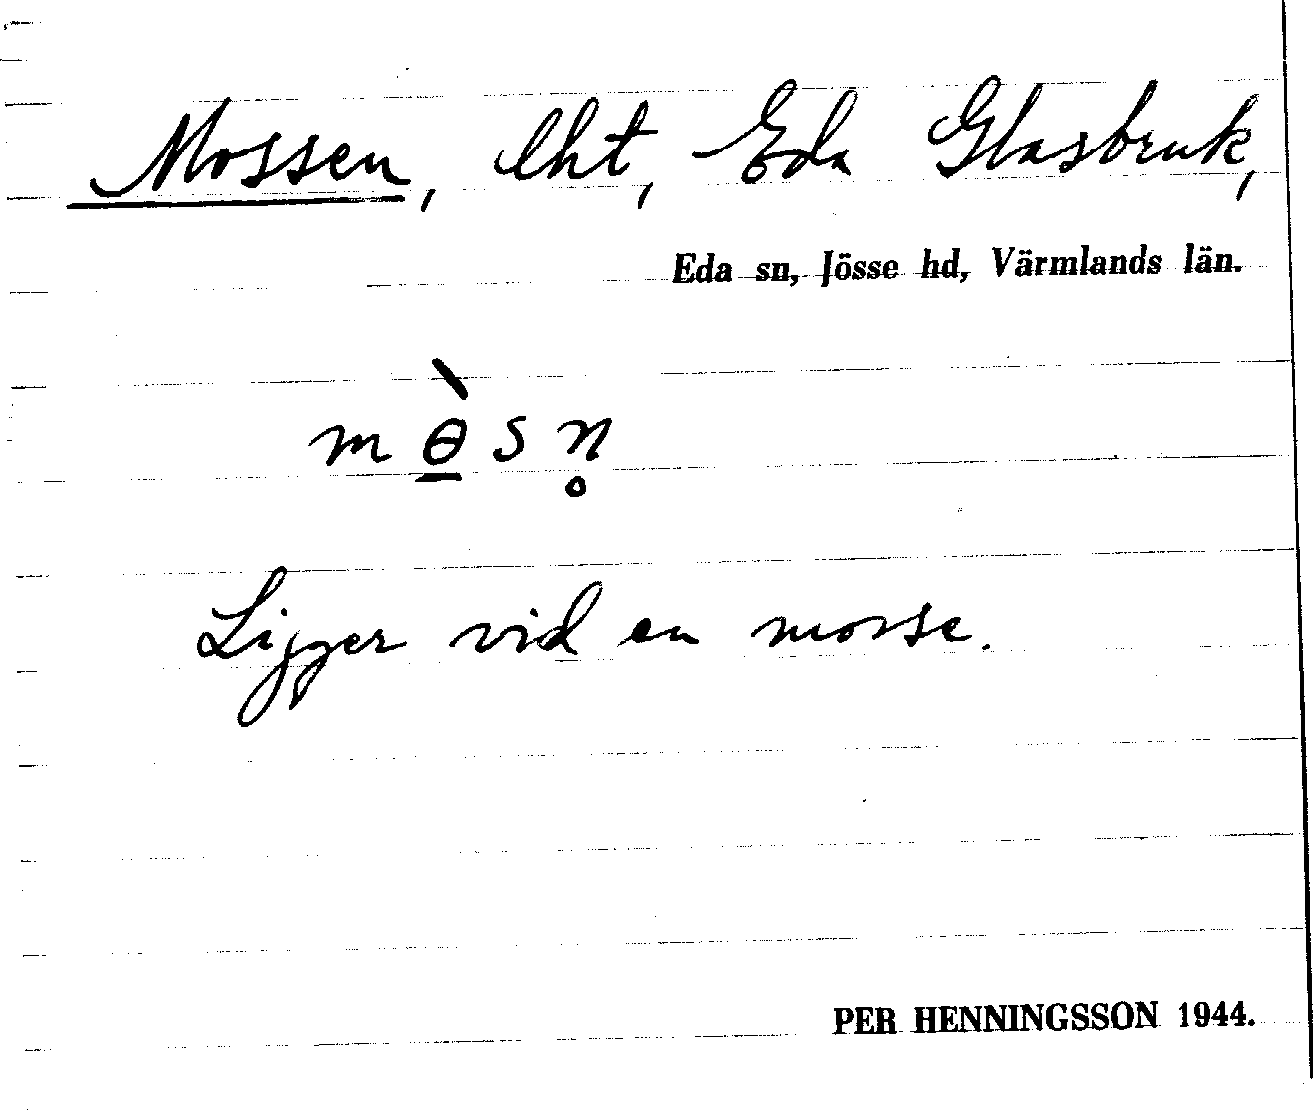 Mossen, lht, Eda Glasbruk,
Eda sn, Jösse hd, Värmlands län.
m ɵ̲̀ s n̥
Ligger vid en mosse.
PER HENNINGSSON 1944.